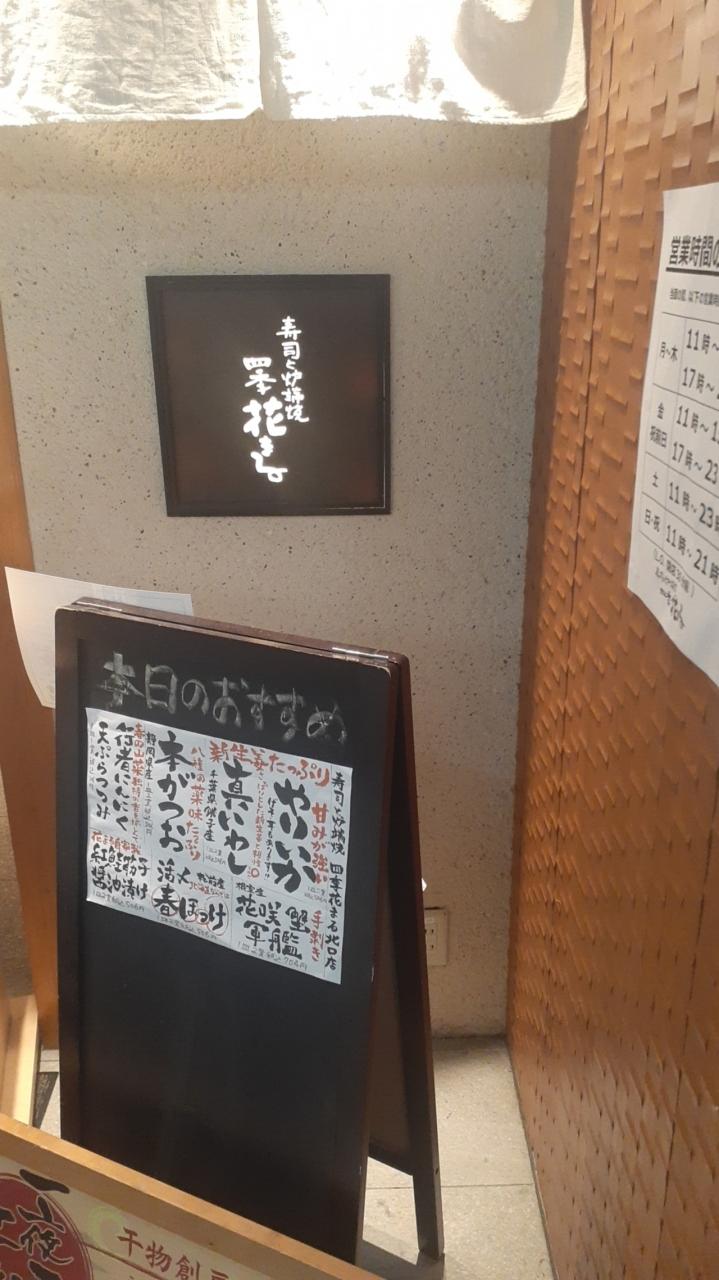 寿司と炉端焼
四季
花まる
営業時間の
当面の間、以下の営業時
月～木
11時～
17時～
金
祝前日
11時～1
17時～23
土
11時～23時
日・祝
11時～21時
本日のおすすめ
寿司と炉端焼 四季花まる 北口店
新生姜たっぷり
甘みが強い
やりいか
真いわし
千葉県銚子産
八種の薬味たっぷり
本がつお
静岡県産
行者にんにく
天ぷらつつみ
手剥き
根室産
花咲蟹
軍艦
松前産
活〆
春ほっけ
紅鮭筋子
醤油漬け
干物創